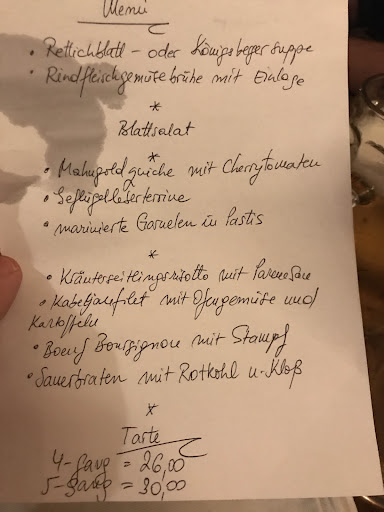 Menü
• Rettichblatt- oder Königsbergersuppe
• Rindfleischgemüsebrühe mit Einlage
*
Blattsalat
*
• Mahngoldquiche mit Cherrytomaten
• Geflügelleberterrine
• marinierte Garnelen in Pastis
*
• Kräuterseitlingsrisotto mit Parmesan
• Kabeljaufilet mit Ofengemüse und
Kartoffeln
• Boeuf Bourgignon mit Stampf
• Sauerbraten mit Rotkohl u. Kloß
*
Tarte
4-gang = 26,00
5-gang = 30,00